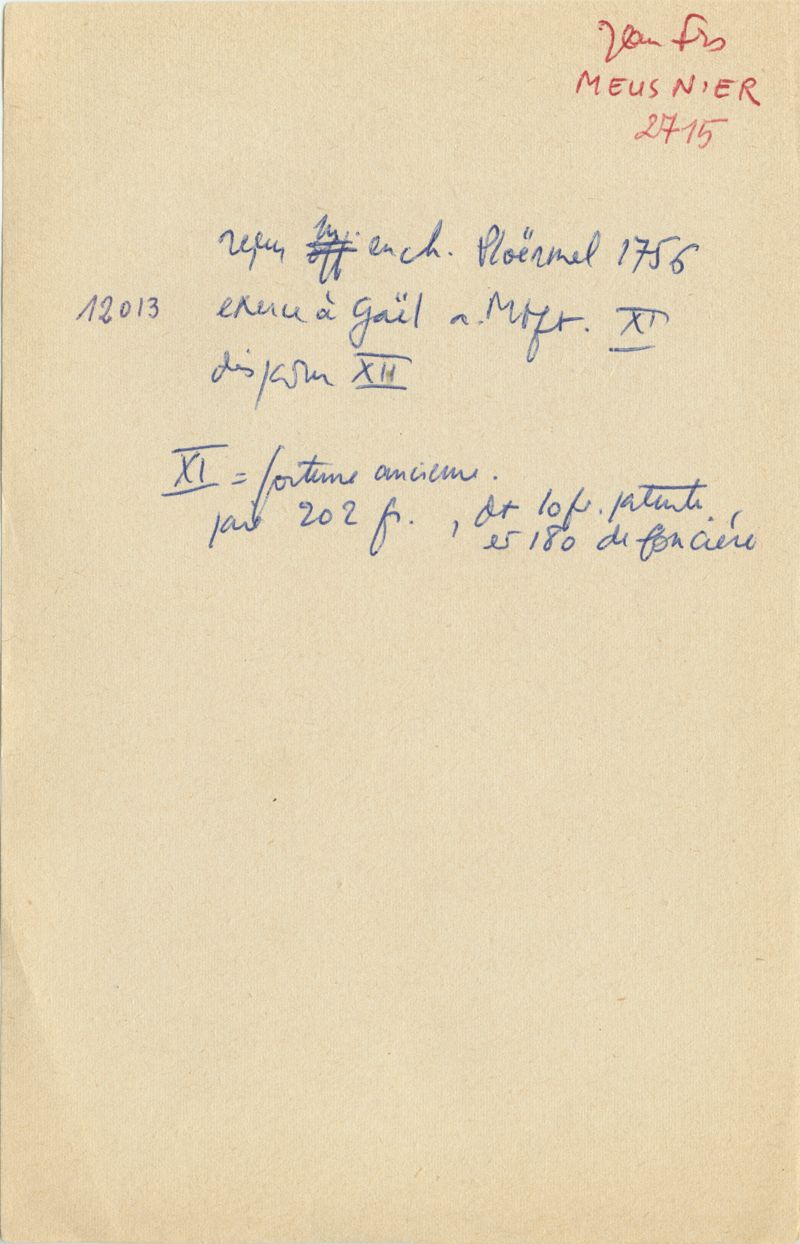 Jean Frs
MEUSNIER
2715
reçu en ch. Ploërmel 1756
12013 exerce à Gaël a. Mtft. XI
disparu XII
XI = fortune ancienne.
paie 202 fr., dt 10 fr. patente,
et 180 de foncière